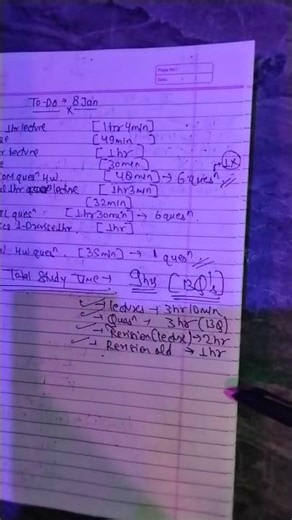 Page No.:
Date:
To-Do → 8 Jan
lecture [1hr 4min]
[49min]
lecture [1 hr]
[30min]
ques^n H.w. [40min] → 6 ques^n 1x
1hr lecture [1hr 3min]
[32min]
ques^n. [1hr 30min] → 6 ques^n.
1hr. [1hr]
H.w ques^n. [35min] → 1 ques^n
Total Study Time → 9hrs [13Q's]
lec(1x) → 3hr 10min
Ques^n → 3hr (13Q)
Revision (lec1x) → 2hr
Revision old → 1hr